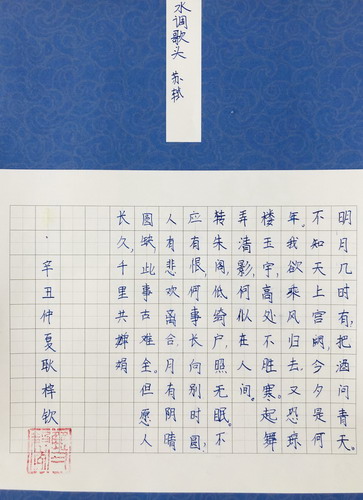 水调歌头 苏轼
明月几时有,把酒问青天。
不知天上宫阙,今夕是何
年。我欲乘风归去,又恐琼
楼玉宇,高处不胜寒。起舞
弄清影,何似在人间。
转朱阁,低绮户,照无眠。不
应有恨,何事长向别时圆,
人有悲欢离合,月有阴晴
圆缺,此事古难全。但愿人
长久,千里共婵娟
·辛丑仲夏耿梓钦